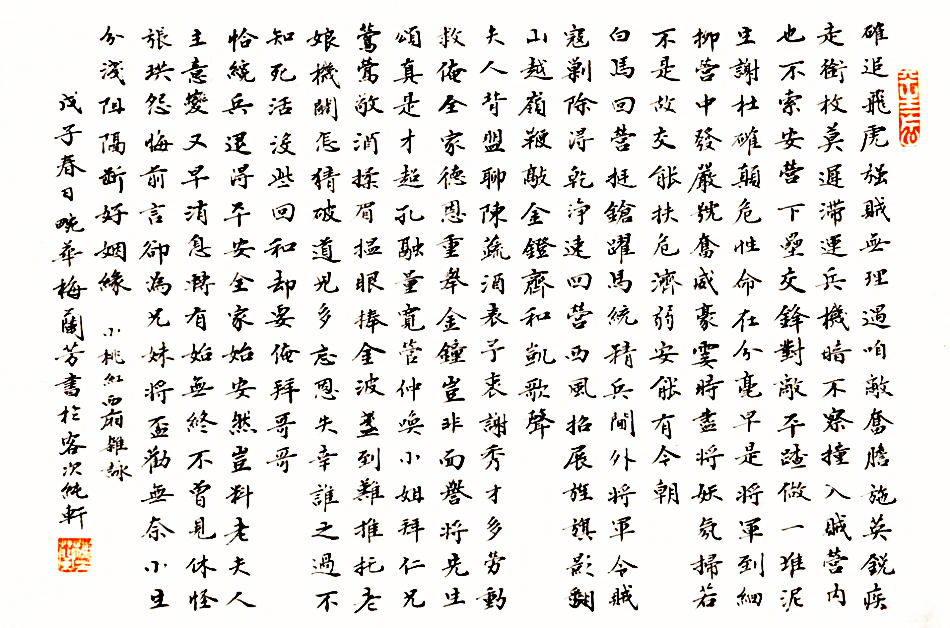 確追飛虎強賊無理遇咱敵奮膽施英銳疾
走銜枚莫遲滯運兵機暗不察撞入賊營內
也不索安營下壘交鋒對敵平踏做一堆泥
生謝杜確顛危性命在分毫早是將軍到細
柳營中發嚴號奮威豪霎時盡將妖氛掃若
不是故交能扶危濟弱安能有今朝
白馬回營挺鎗躍馬統精兵閫外將軍令賊
寇剿除得乾淨速回營西風招展旌旗影翻
山越嶺鞭敲金鐙齊和凱歌聲
夫人背盟聊陳蔬酒表予衷謝秀才多勞動
救俺全家德恩重舉金鐘豈非面譽將先生
頌真是才超孔融量寬管仲喚小姐拜仁兄
鶯鶯敬消揉眉搵眼捧金波盞到難推托老
娘機關怎猜破道兄多忘恩失幸誰之過不
知死活沒些回和却要俺拜哥哥
恰繞兵還得平安全家始安然豈料老夫人
主意變又早消息漸有始無終不曾見休怪
張珙怨悔前言卻為兄妹將盃勸無奈小生
分淺阻隔斷好姻緣 小桃紅西廂雜詠
戊子春日畹華梅蘭芳書於客次純軒